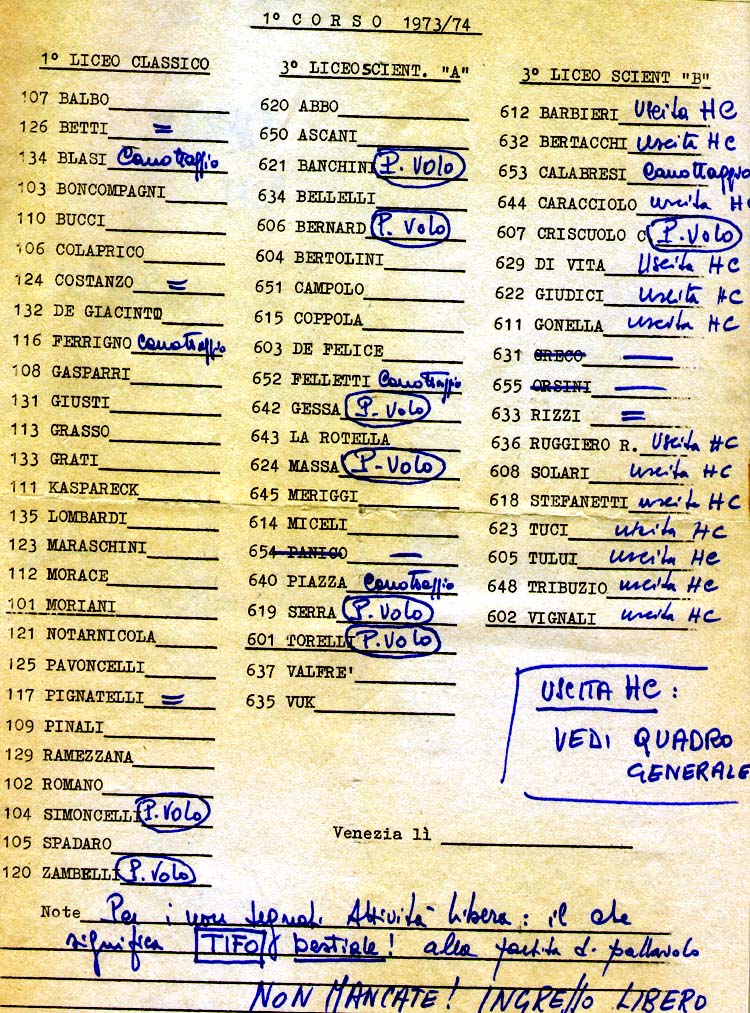 1° C O R S O 1973/74
1° LICEO CLASSICO
107 BALBO
126 BETTI =
134 BLASI Canottaggio
103 BONCOMPAGNI
110 BUCCI
106 COLAPRICO
124 COSTANZO =
132 DE GIACINTO
116 FERRIGNO Canottaggio
108 GASPARRI
131 GIUSTI
113 GRASSO
133 GRATI
111 KASPARECK
135 LOMBARDI
123 MARASCHINI
112 MORACE
101 MORIANI
121 NOTARNICOLA
125 PAVONCELLI
117 PIGNATELLI =
109 PINALI
129 RAMEZZANA
102 ROMANO
104 SIMONCELLI P. VOLO
105 SPADARO
120 ZAMBELLI P. VOLO
3° LICEO SCIENT. "A"
620 ABBO
650 ASCANI
621 BANCHINI P. VOLO
634 BELLELLI
606 BERNARD P. VOLO
604 BERTOLINI
651 CAMPOLO
615 COPPOLA
603 DE FELICE
652 FELLETTI Canottaggio
642 GESSA P. VOLO
643 LA ROTELLA
624 MASSA P-VOLO
645 MERIGGI
614 MICELI
654 PANICO —
640 PIAZZA Canottaggio
619 SERRA P. VOLO
601 TORELLI P. VOLO
637 VALFRE'
635 VUK
3° LICEO SCIENT "B"
612 BARBIERI Uscita HC
632 BERTACCHI uscita HC
653 CALABRESI Canottaggio
644 CARACCIOLO uscita HC
607 CRISCUOLO C P. VOLO
629 DI VITA Uscita HC
622 GIUDICI uscita HC
611 GONELLA uscita HC
631 GRECO —
655 ORSINI —
633 RIZZI =
636 RUGGIERO R. Uscita HC
608 SOLARI uscita HC
618 STEFANETTI uscita HC
623 TUCI uscita HC
605 TULUI uscita HC
648 TRIBUZIO uscita HC
602 VIGNALI uscita HC
USCITA HC :
VEDI QUADRO
GENERALE
Venezia lì
Note Per i non segnati Attività libera : il che
significa TIFO bestiale ! alla partita di pallavolo
NON MANCATE ! INGRESSO LIBERO